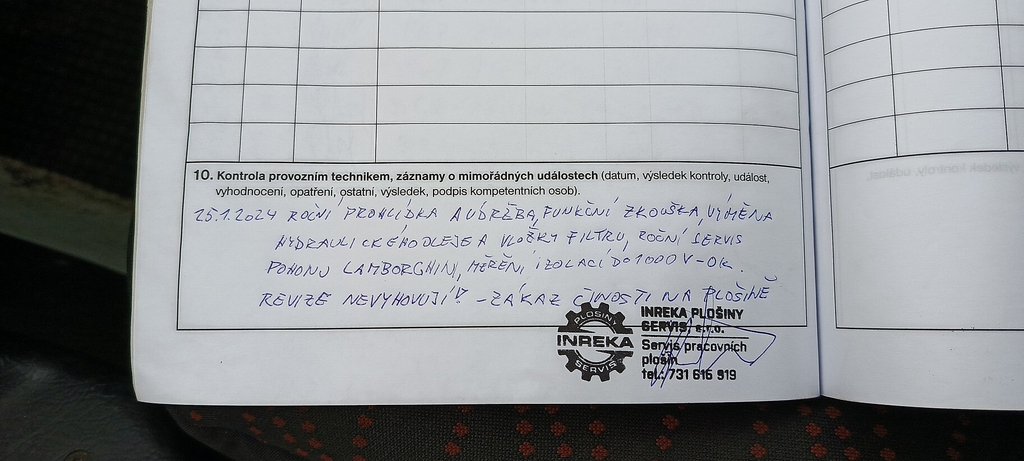 10. Kontrola provozním technikem, záznamy o mimořádných událostech (datum, výsledek kontroly, událost,
vyhodnocení, opatření, ostatní, výsledek, podpis kompetentních osob).
25.1.2024 ROČNÍ PROHLÍDKA A ÚDRŽBA, FUNKČNÍ ZKOUŠKA, VÝMĚNA
HYDRAULICKÉHO OLEJE A VLOŽKY FILTRU, ROČNÍ SERVIS
POHONU LAMBORGHINI, MĚŘENÍ IZOLACÍ DO 1000 V - OK.
REVIZE NEVYHOVUJÍ! - ZÁKAZ ČINOSTI NA PLOŠINĚ
PLOŠINY
INREKA
SERVIS
INREKA PLOŠINY
SERVIS, s.r.o.
Servis pracovních
plošin
tel.: 731 616 919
výsledek kontroly, událost,